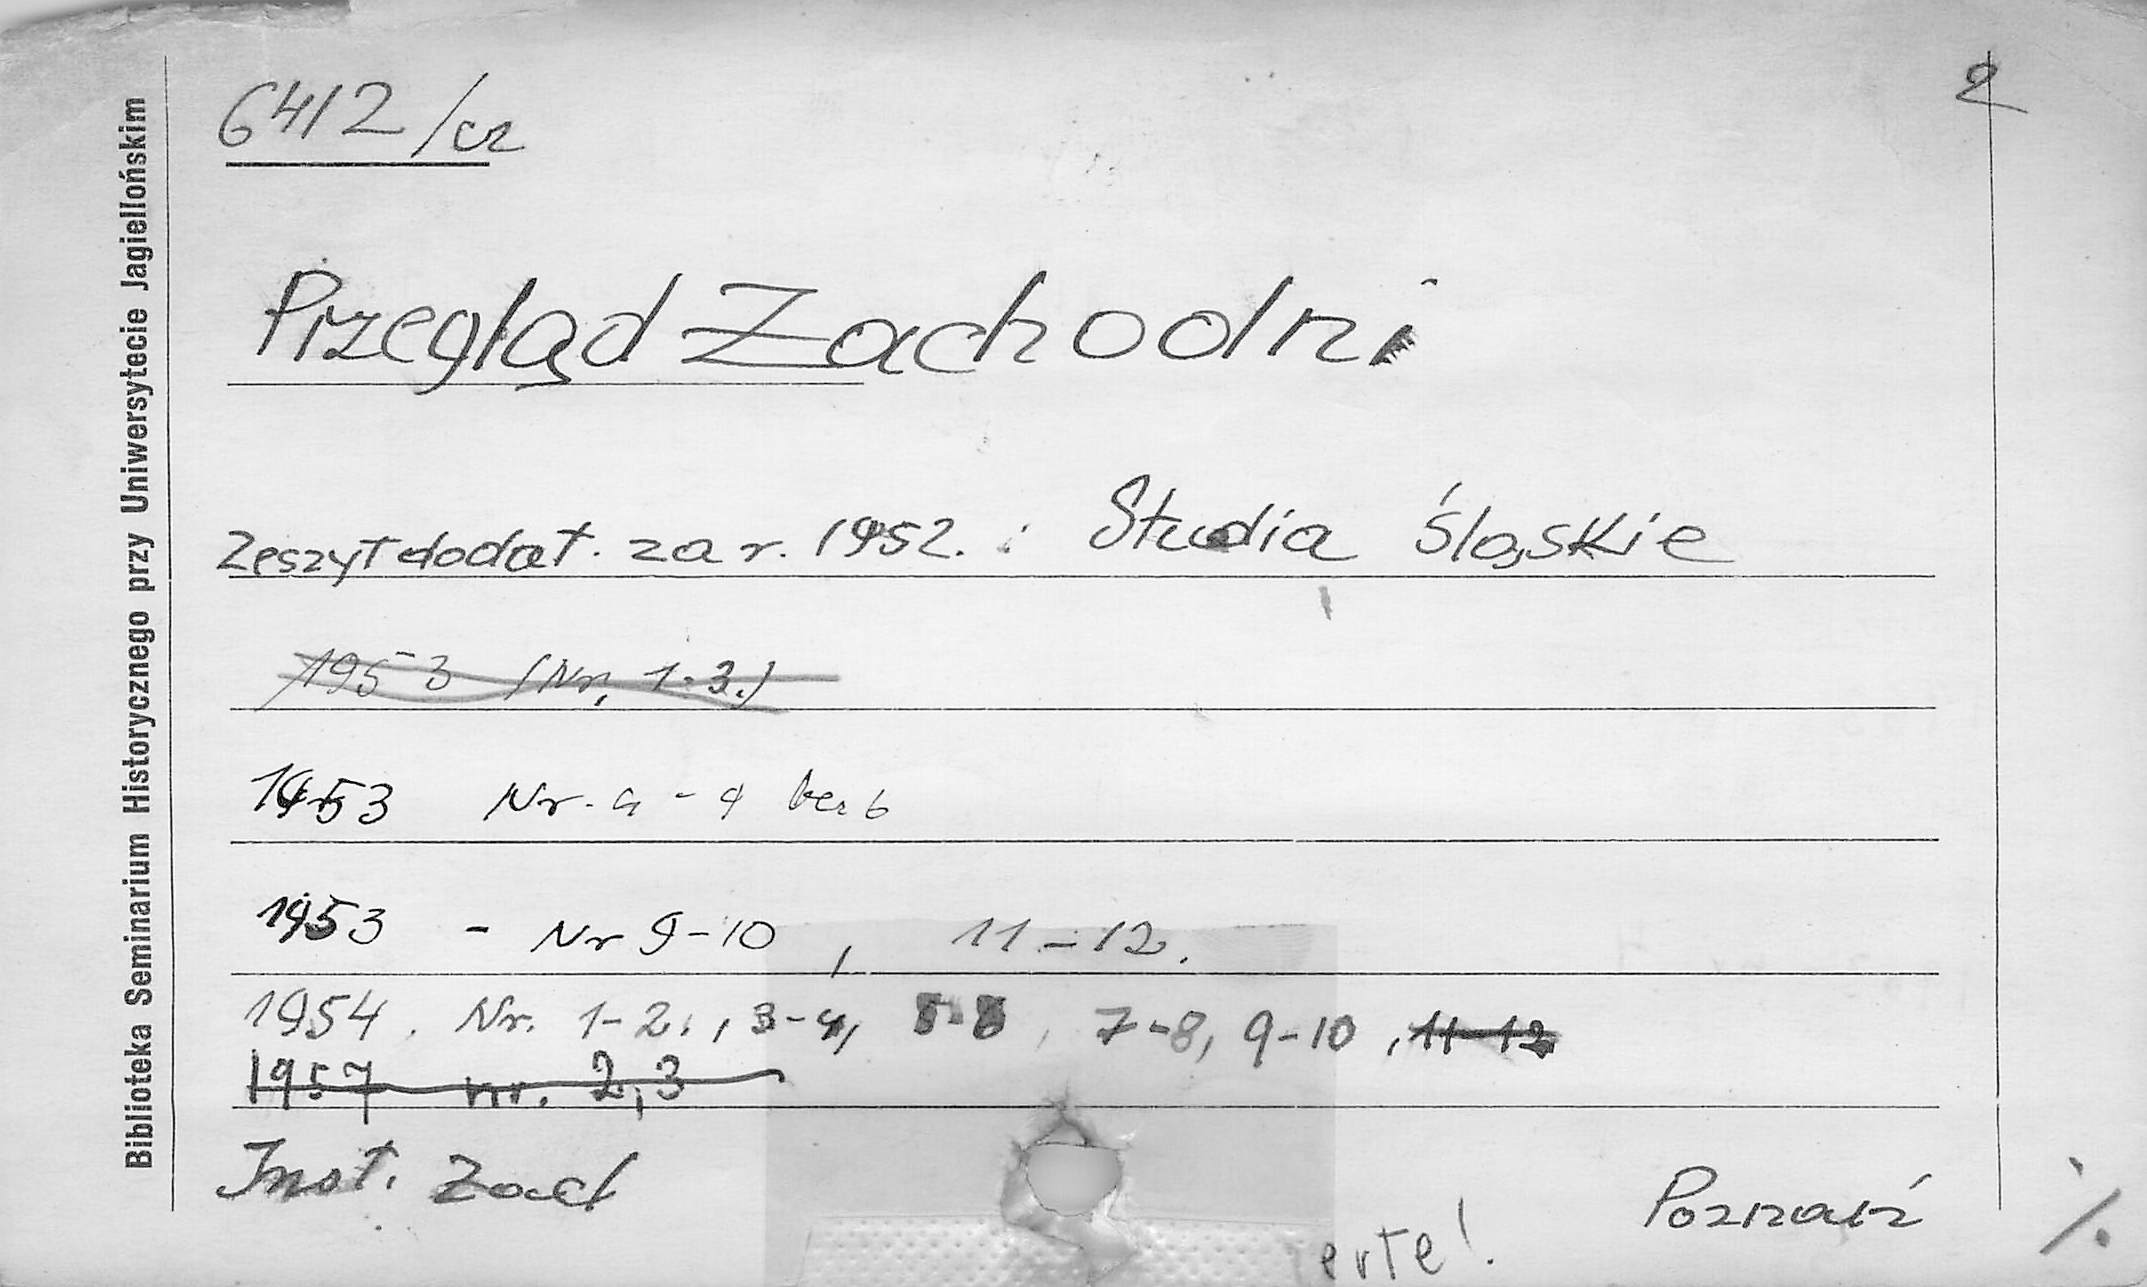 6412/cz
2
Przegląd Zachodni
Zeszyt dodat. za r. 1952. : Studia śląskie
1953 (Nr, 1-3.)
1953 Nr. 4 - 9 bez 6
1953 - Nr 9-10, 11-12.
1954. Nr. 1-2., 3-4, 5-6, 7-8, 9-10, 11-12
1957 nr. 2,3
Inst. Zach
Poznań
erte!
./.
Biblioteka Seminarium Historycznego przy Uniwersytecie Jagiellońskim